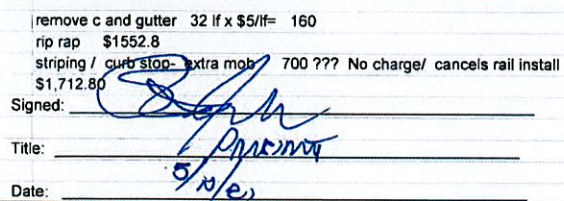 remove c and gutter 32 lf x $5/lf= 160
rip rap $1552.8
striping / curb stop- extra mob 700 ??? No charge/ cancels rail install
$1,712.80
Signed:
Title:
Date: